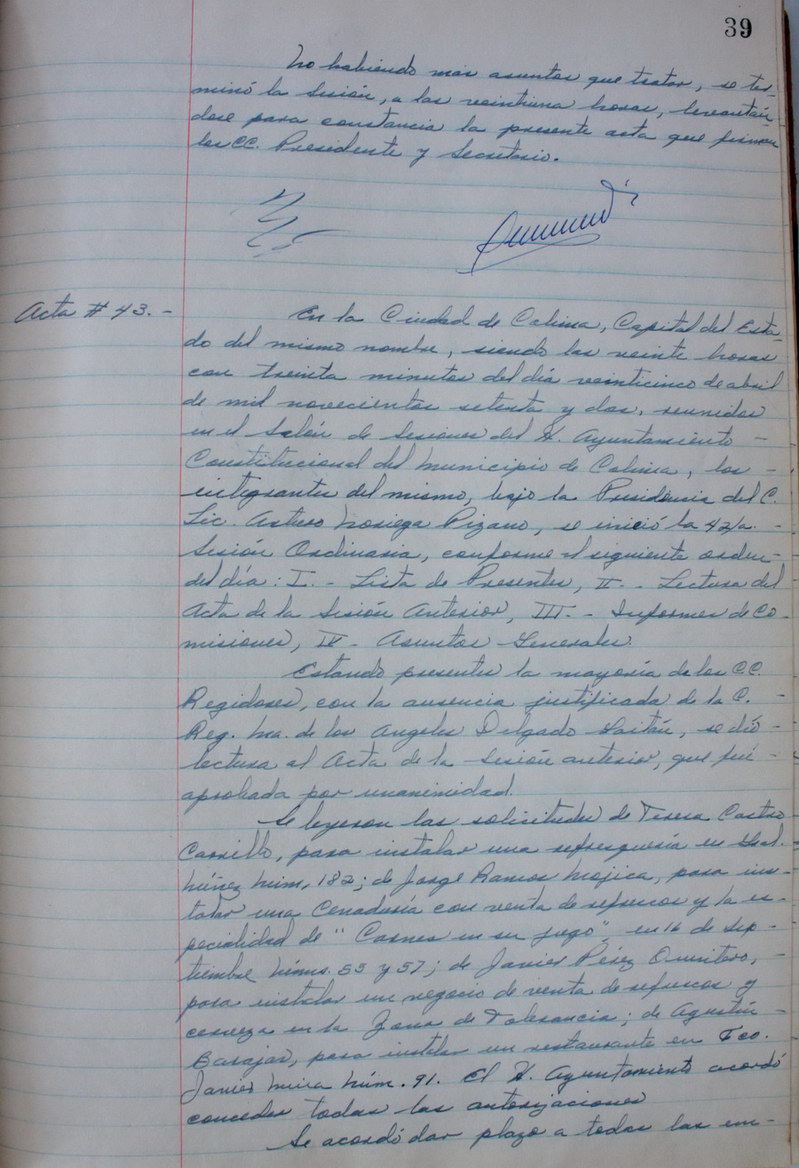 39
No habiendo más asuntos que tratar, se ter-
minó la Sesión, a las veintiuna horas, levantán-
dose para constancia la presente acta que firman
los CC. Presidente y Secretario.
Acta # 43.-
En la Ciudad de Colima, Capital del Esta-
do del mismo nombre, siendo las veinte horas
con treinta minutos del día veinticinco de abril
de mil novecientos setenta y dos, reunidos
en el Salón de Sesiones del H. Ayuntamiento -
Constitucional del Municipio de Colima, los -
integrantes del mismo, bajo la Presidencia del C.
Lic. Arturo Noriega Pizano, se inició la 42/a. -
Sesión Ordinaria, conforme al siguiente orden -
del día: I.- Lista de Presentes, II.- Lectura del
Acta de la Sesión Anterior, III.- Informes de Co-
misiones, IV- Asuntos Generales.
Estando presentes la mayoría de los CC.
Regidores, con la ausencia justificada de la C. -
Reg. Ma. de los Angeles Delgado, se dió -
lectura al Acta de la Sesión anterior, que fué -
aprobada por unanimidad.
Se leyeron las solicitudes de Teresa Castro
Carrillo, para instalar una refresquería en Gral.
Núñez Núm. 182; de Jorge Ramos Mojica, para ins-
talar una Cenaduría con venta de refrescos y la es-
pecialidad de "Carnes en su jugo", en 16 de Sep-
tiembre Núms. 55 y 57; de Javier Pérez, -
para instalar un negocio de venta de refrescos y
cerveza en la Zona de Tolerancia; de Agustín -
Barajas, para instalar un restaurante en Fco.
Javier Mina Núm. 91. El H. Ayuntamiento acordó
conceder todas las autorizaciones
Se acordó dar plazo a todas las em-